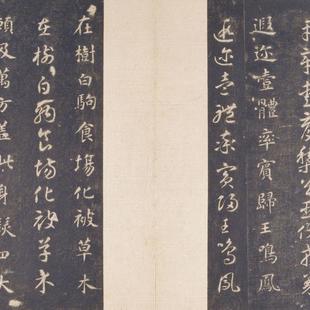 平章愛育黎首臣伏戎羌
遐迩壹體率賓歸王鳴鳳
遐迩壹體率賓歸王鳴鳳
在樹白駒食場化被草木
在樹白駒食場化被草木
賴及萬方蓋此身髮四大